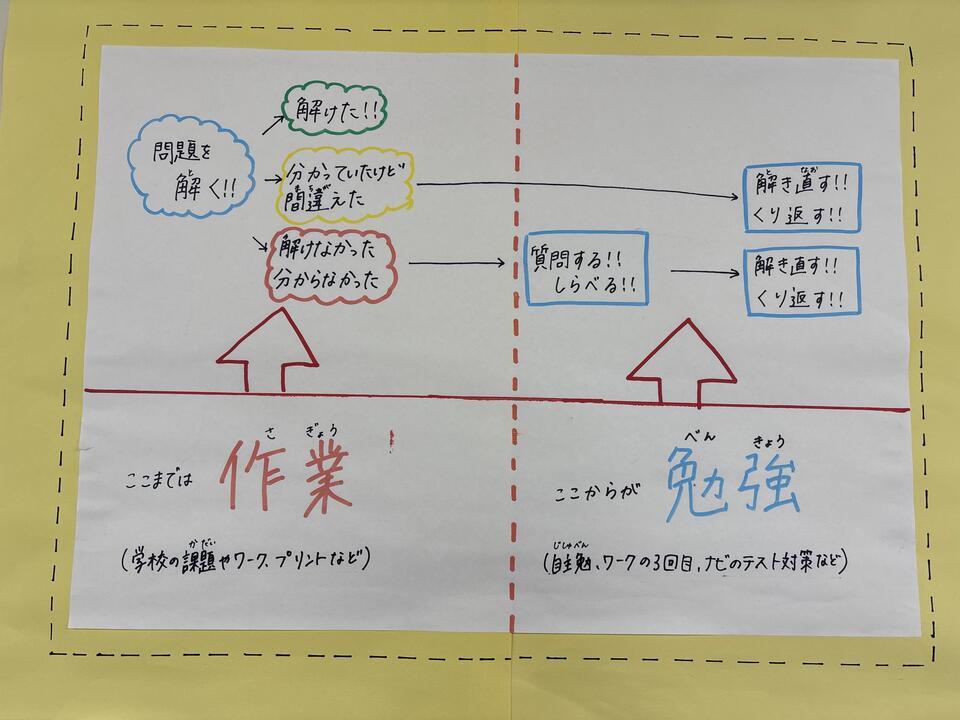 問題を
解く!!
解けた!!
分かっていたけど
間違えた
解けなかった
分からなかった
質問する!!
しらべる!!
解き直す!!
くり返す!!
解き直す!!
くり返す!!
ここまでは 作業
(学校の課題やワーク、プリントなど)
ここからが 勉強
(自主勉、ワークの3回目、ナビのテスト対策など)